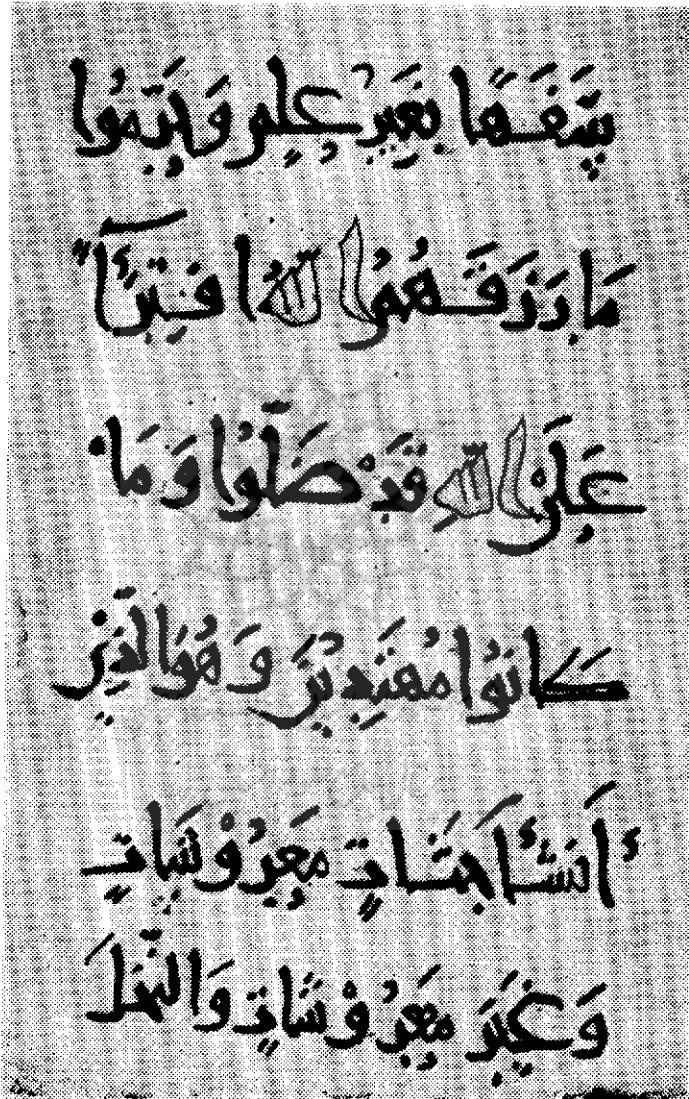 سَفَهًا بِغَيْرِ عِلْمٍ وَحَرَّمُوا
مَا رَزَقَهُمُ اللهُ افْتِرَآءً
عَلَى اللهِ قَدْ ضَلُّوا وَمَا
كَانُوا مُهْتَدِيْنَ وَهُوَ الَّذِي
أَنْشَأَ جَنَّاتٍ مَعْرُوْشَاتٍ
وَغَيْرَ مَعْرُوْشَاتٍ وَالنَّخْلَ